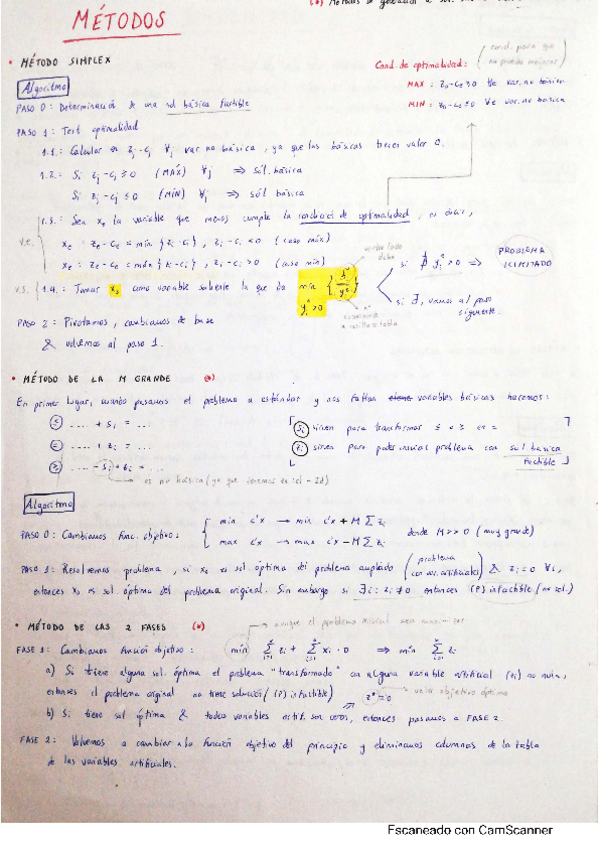 MÉTODOS
• MÉTODO SIMPLEX
Cond. de optimalidad: (cond. para que no pueda mejorar)
Algoritmo
MAX : z_j - c_j ≥ 0 ∀ var. no básica
MIN : z_j - c_j ≤ 0 ∀ var. no básica
PASO 0 : Determinación de una sol básica factible
PASO 1 : Test optimalidad
1.1. : Calcular z_j - c_j ∀j var no básica, ya que las básicas tienen valor 0.
1.2. : Si z_j - c_j ≥ 0 (MÁX) ∀j ⇒ sól. básica
Si z_j - c_j ≤ 0 (MÍN) ∀j ⇒ sól básica
1.3. : Sea x_e la variable que menos cumple la condición de optimalidad, es decir,
v.e.
x_e : z_e - c_e = mín {z_j - c_j}, z_j - c_j < 0 (caso máx)
x_e : z_e - c_e = máx {z_j - c_j}, z_j - c_j > 0 (caso mín)
v.s. 1.4. : Tomar x_s como variable saliente la que da min
si ∄ y_i^e > 0 ⇒ PROBLEMA ILIMITADO
y_i^e > 0
si ∃, vamos al paso siguiente.
PASO 2 : Pivotamos, cambiamos de base
& volvemos al paso 1.
• MÉTODO DE LA M GRANDE (*)
En primer lugar, cuando pasamos el problema a estándar y nos faltan variables básicas hacemos:
≤ ... + s_i = ....
s_i sirven para transformar ≤ o ≥ en =
= .... + z_i = ....
z_i sirven para poder inicial problema con sol básica factible
≥ ... - s_i + z_i = ...
es no básica
Algoritmo
PASO 0 : Cambiamos func. objetivo :
min c'x → min c'x + M Σ z_i
max c'x → max c'x - M Σ z_i
donde M >> 0 (muy grande)
PASO 1 : Resolvemos problema, si x_0 es sol. óptima del problema ampliado (problema con var. artificiales) & z_i = 0 ∀i,
entonces x_0 es sol. óptima del problema original. Sin embargo si ∃ i : z_i ≠ 0 entonces (P) infactible (no sol.)
• MÉTODO DE LAS 2 FASES (*)
aunque el problema inicial sea maximizar
FASE 1 : Cambiamos función objetivo : mín Σ z_i + Σ x_i · 0 ⇒ mín Σ z_i
a) Si tiene alguna sol. óptima el problema "transformado" con alguna variable artificial (z_i) no nula,
entonces el problema original no tiene solución ( (P) infactible)
z* = 0
valor objetivo óptimo
b) Si tiene sol óptima & todas variables artif. son ceros, entonces pasamos a FASE 2.
FASE 2 : Volvemos a cambiar a la función objetivo del principio y eliminamos columnas de la tabla
de las variables artificiales.
Escaneado con CamScanner